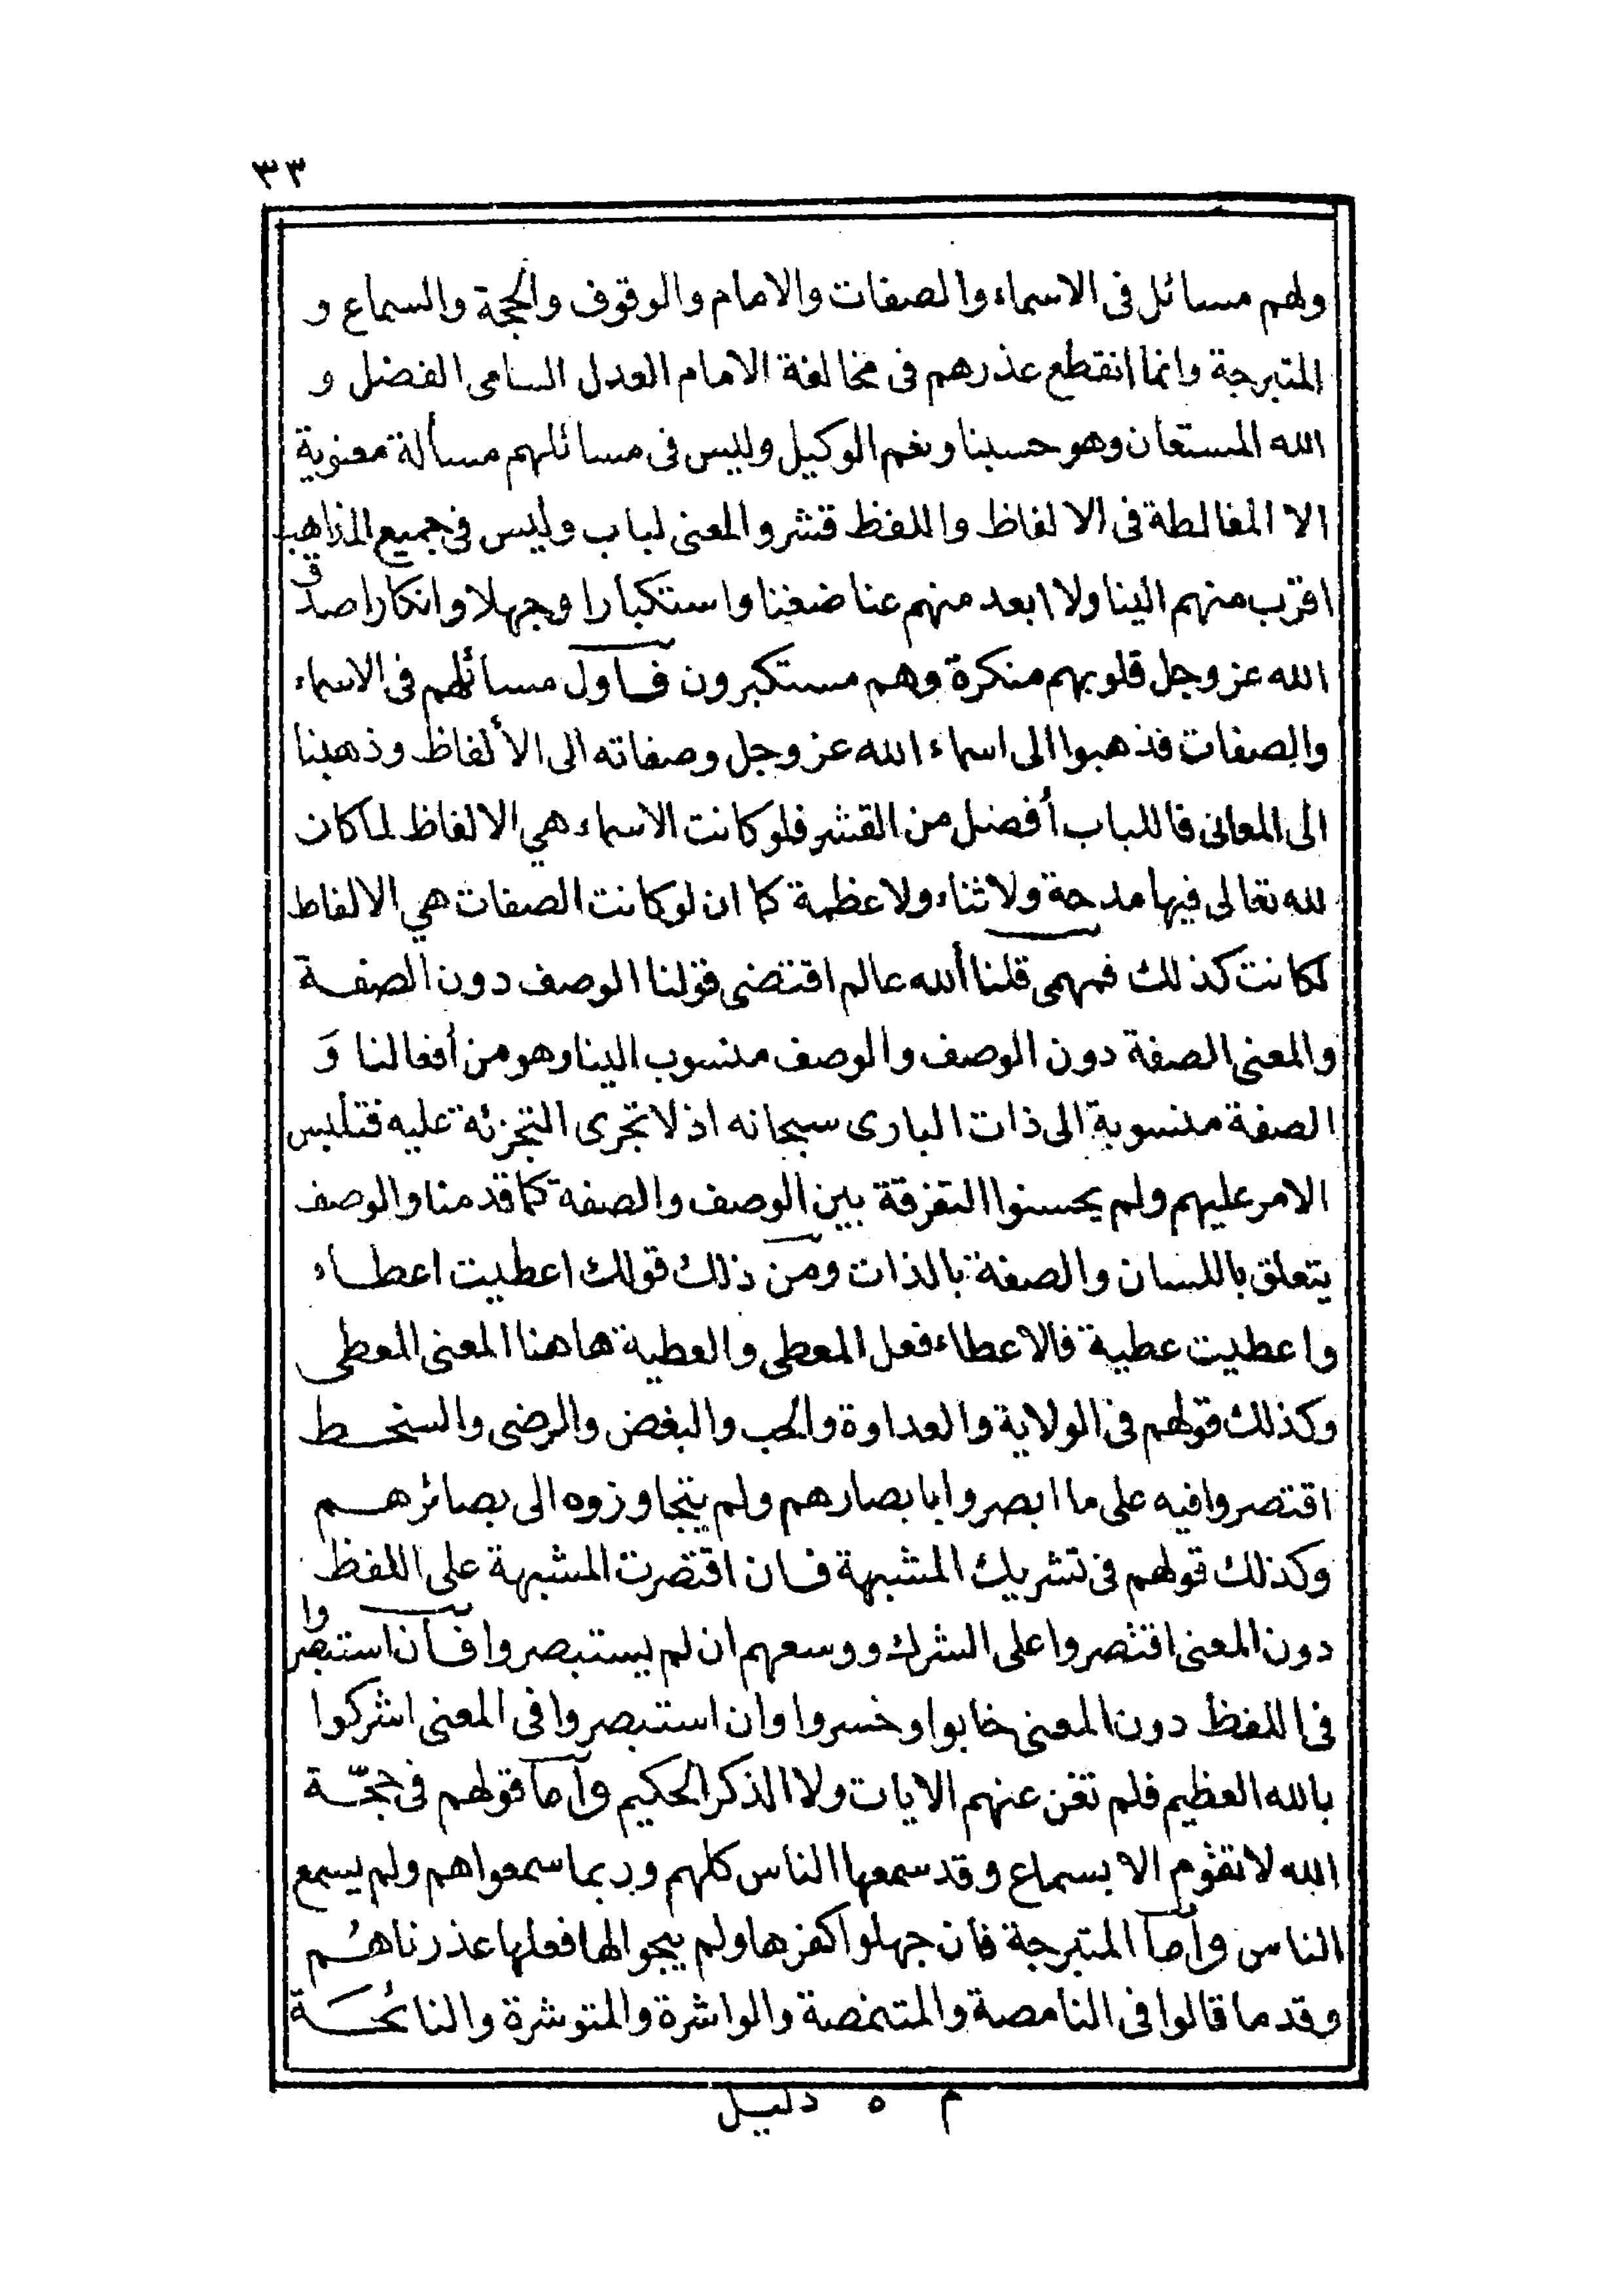 ٣٣
ولهم مسائل فى الاسماء والصفات والامام والوقوف والحجة والسماع و
المتبرجة وانما انقطع عذرهم فى مخالفة الامام العدل السامى الفضل و
الله المستعان وهو حسبنا ونعم الوكيل وليس فى مسائلهم مسألة معنوية
الا المغالطة فى الالفاظ واللفظ قشر والمعنى لباب وليس فى جميع المذاهب
اقرب منهم الينا ولا ابعد منهم عنا ضغنا واستكبارا وجهلا وانكارا صدق
الله عز وجل قلوبهم منكرة وهم مستكبرون فاول مسائلهم فى الاسماء
والصفات فذهبوا الى اسماء الله عز وجل وصفاته الى الألفاظ وذهبنا
الى المعانى فاللباب أفضل من القشر فلو كانت الاسماء هي الالفاظ لما كان
لله تعالى فيها مدحة ولا ثناء ولا عظمة كما ان لو كانت الصفات هي الالفاظ
لكانت كذلك فمهمى قلنا ألله عالم اقتضى قولنا الوصف دون الصفة
والمعنى الصفة دون الوصف والوصف منسوب الينا وهو من أفعالنا وَ
الصفة منسوبة الى ذات البارى سبحانه اذ لا تجرى التجزئة عليه فتلبس
الامر عليهم ولم يحسنوا التفرقة بين الوصف والصفة كما قدمنا والوصف
يتعلق باللسان والصفة بالذات ومن ذلك قولك اعطيت اعطاء
واعطيت عطية فالاعطاء فعل المعطى والعطية هاهنا المعنى المعطى
وكذلك قولهم فى الولاية والعداوة والحب والبغض والرضى والسخط
اقتصروا فيه على ما ابصروا بابصارهم ولم يتجاوزوه الى بصائرهم
وكذلك قولهم فى تشريك المشبهة فان اقتصرت المشبهة على اللفظ
دون المعنى اقتصروا على الشرك ووسعهم ان لم يستبصروا فأن استبصروا
فى اللفظ دون المعنى خابوا وخسروا وان استبصروا فى المعنى اشركوا
بالله العظيم فلم تغن عنهم الايات ولا الذكر الحكيم وأما قولهم فى حجّة
الله لا تقوم الا بسماع وقد سمعها الناس كلهم وربما سمعواهم ولم يسمع
الناس وأما المتبرجة فأن جهلوا كفرها ولم يبيحوا لها فعلها عذرناهُم
وقدما قالوا فى النامصة والمتنمصة والواشرة والمتوشرة والنائحَة
م ٥ دليل